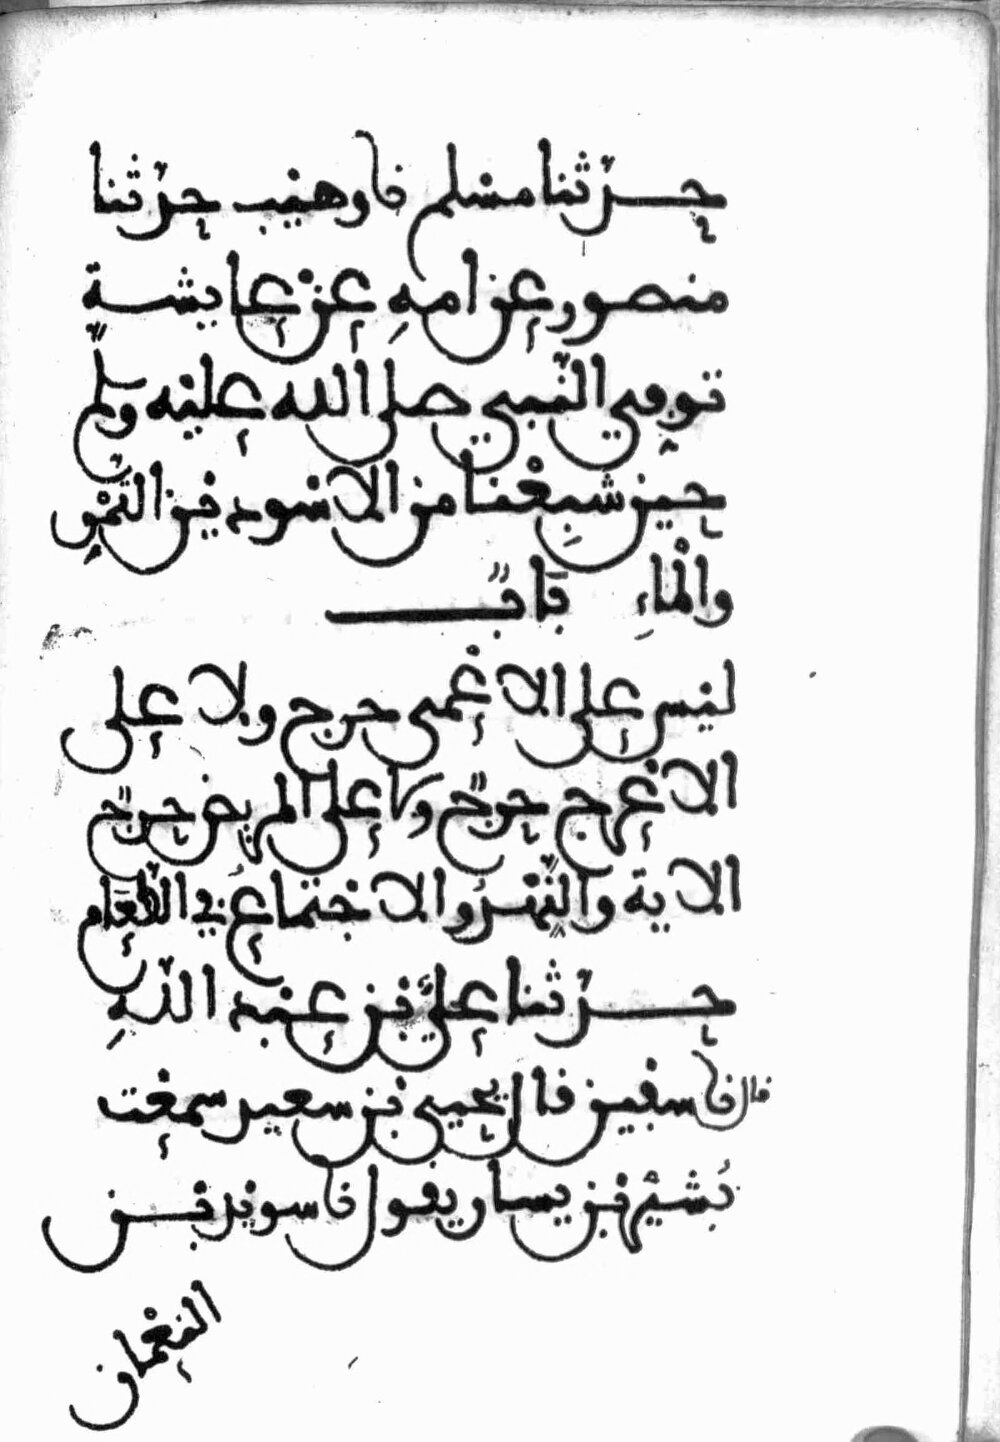 حدثنا مسلم نا وهيب حدثنا
منصور عن امه عن عايشة
توفي النبي صلى الله عليه وسلم
حين شبعنا من الاسودين التمر
والماء باب
ليس على الاعمى حرج ولا على
الاعرج حرج ولا على المريض حرج
الاية والنهد والاجتماع في الطعام
حدثنا علي بن عبد الله
قال نا سفين قال يحيى بن سعيد سمعت
بشير بن يسار يقول نا سويد بن
النعمان